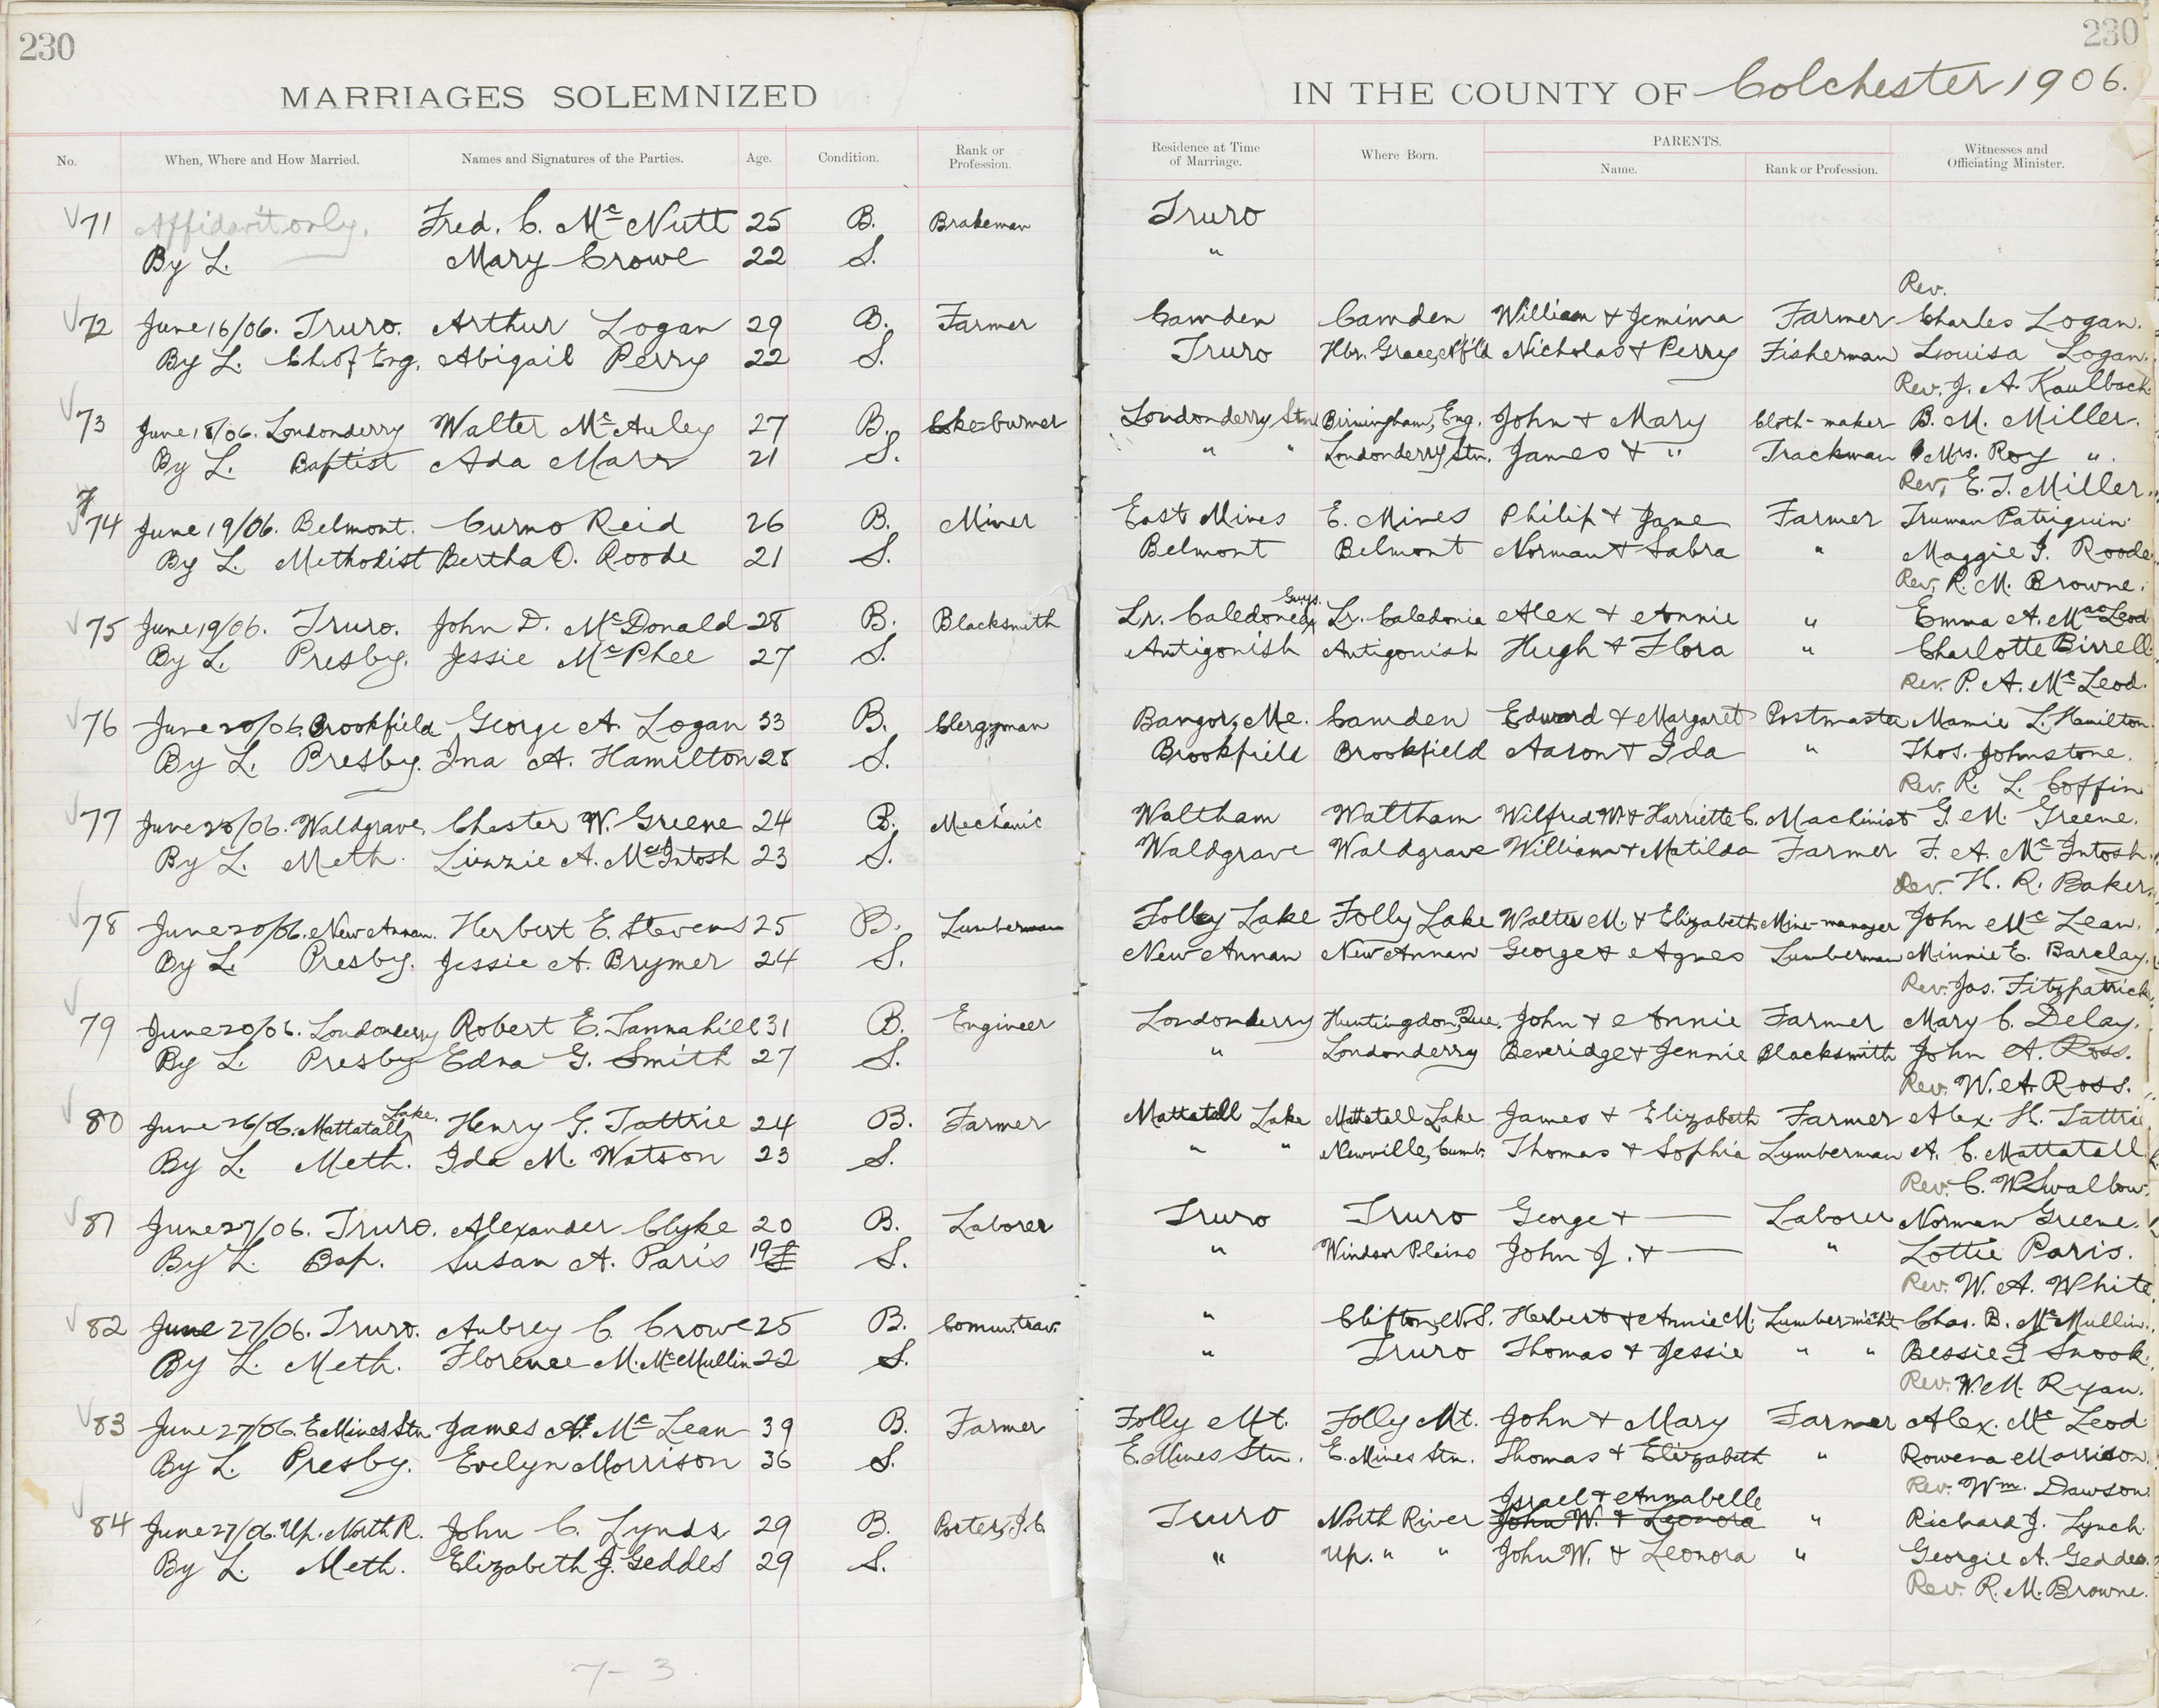 230
230
MARRIAGES SOLEMNIZED
IN THE COUNTY OF Colchester 1906.
No. When, Where and How Married. Names and Signatures of the Parties. Age. Condition. Rank or Profession. Residence at Time of Marriage. Where Born. PARENTS. Name. Rank or Profession. Witnesses and Officiating Minister.
71 Affidavit only. Fred. C. McNutt 25 B. Brakeman Truro
By L. Mary Crowe 22 S. "
Rev.
72 June 16/06. Truro. Arthur Logan 29 B. Farmer Camden Camden William + Jemima Farmer Charles Logan.
By L. Ch. of Eng. Abigail Perry 22 S. Truro Hbr. Grace, Nfld Nicholas + Perry Fisherman Louisa Logan.
Rev. J. A. Kaulback
73 June 18/06. Londonderry Walter McAuley 27 B. Coke-burner Londonderry Stn. Birmingham, Eng. John + Mary Cloth-maker B. M. Miller.
By L. Baptist Ada Marr 21 S. " " Londonderry Stn. James + " Trackman Mrs. Roy "
Rev. E. T. Miller.
74 June 19/06. Belmont. Curmo Reid 26 B. Miner East Mines E. Mines Philip + Jane Farmer Truman Patriquin
By L. Methodist Bertha O. Roode 21 S. Belmont Belmont Norman + Sabra " Maggie J. Roode
Rev. R. M. Browne.
75 June 19/06. Truro. John D. McDonald 28 B. Blacksmith Lr. Caledonia, Guys. Lr. Caledonia Alex + Annie " Emma A. MacLeod
By L. Presby. Jessie McPhee 27 S. Antigonish Antigonish Hugh + Flora " Charlotte Birrell
Rev. P. A. McLeod.
76 June 20/06. Brookfield George A. Logan 33 B. Clergyman Bangor, Me. Camden Edward + Margaret Postmaster Mamie L. Hamilton
By L. Presby. Ina A. Hamilton 28 S. Brookfield Brookfield Aaron + Ida " Thos. Johnstone.
Rev. R. L. Coffin
77 June 20/06. Waldgrave Chester W. Greene 24 B. Mechanic Waltham Waltham Wilfred W. + Harriette C. Machinist G. M. Greene.
By L. Meth. Linzie A. McIntosh 23 S. Waldgrave Waldgrave William + Matilda Farmer F. A. McIntosh.
Rev. H. R. Baker
78 June 20/06. New Annan. Herbert E. Stevens 25 B. Lumberman Folly Lake Folly Lake Walter M. + Elizabeth Mine-manager John McLean.
By L. Presby. Jessie A. Brymer 24 S. New Annan New Annan George + Agnes Lumberman Minnie E. Barclay.
Rev. Jas. Fitzpatrick
79 June 20/06. Londonderry Robert E. Tannahill 31 B. Engineer Londonderry Huntingdon, Que. John + Annie Farmer Mary C. Delay.
By L. Presby Edna G. Smith 27 S. " Londonderry Beveridge + Jennie Blacksmith John A. Ross.
Rev. W. A. Ross.
80 June 26/06. Mattatall Lake. Henry G. Tattrie 24 B. Farmer Mattatall Lake Mattatall Lake James + Elizabeth Farmer Alex. H. Tattrie
By L. Meth. Ida M. Watson 23 S. " " Newville, Cumb. Thomas + Sophia Lumberman A. C. Mattatall
Rev. C. W. Swallow.
81 June 27/06. Truro. Alexander Clyke 20 B. Laborer Truro Truro George + — Laborer Norman Greene.
By L. Bap. Susan A. Paris 19 S. " Windsor Plains John J. + — " Lottie Paris.
Rev. W. A. White
82 June 27/06. Truro. Aubrey C. Crowe 25 B. Comm. trav. " Clifton, N.S. Herbert + Annie M. Lumber-m'cht Chas. B. McMullin.
By L. Meth. Florence M. McMullin 22 S. " Truro Thomas + Jessie " " Bessie I. Snook
Rev. W. M. Ryan.
83 June 27/06. E Mines Stn. James A. McLean 39 B. Farmer Folly Mt. Folly Mt. John + Mary Farmer Alex. McLeod
By L. Presby. Evelyn Morrison 36 S. E. Mines Stn. E. Mines Stn. Thomas + Elizabeth " Rowena Morrison.
Rev. Wm. Dawson
Israel + Annabelle
84 June 27/06. Up. North R. John C. Lynds 29 B. Porter, I.C. Truro North River John W. + Leonora " Richard J. Lynch
By L. Meth. Elizabeth J. Geddes 29 S. " Up. " " John W. + Leonora " Georgie A. Geddes.
Rev. R. M. Browne.
7-3